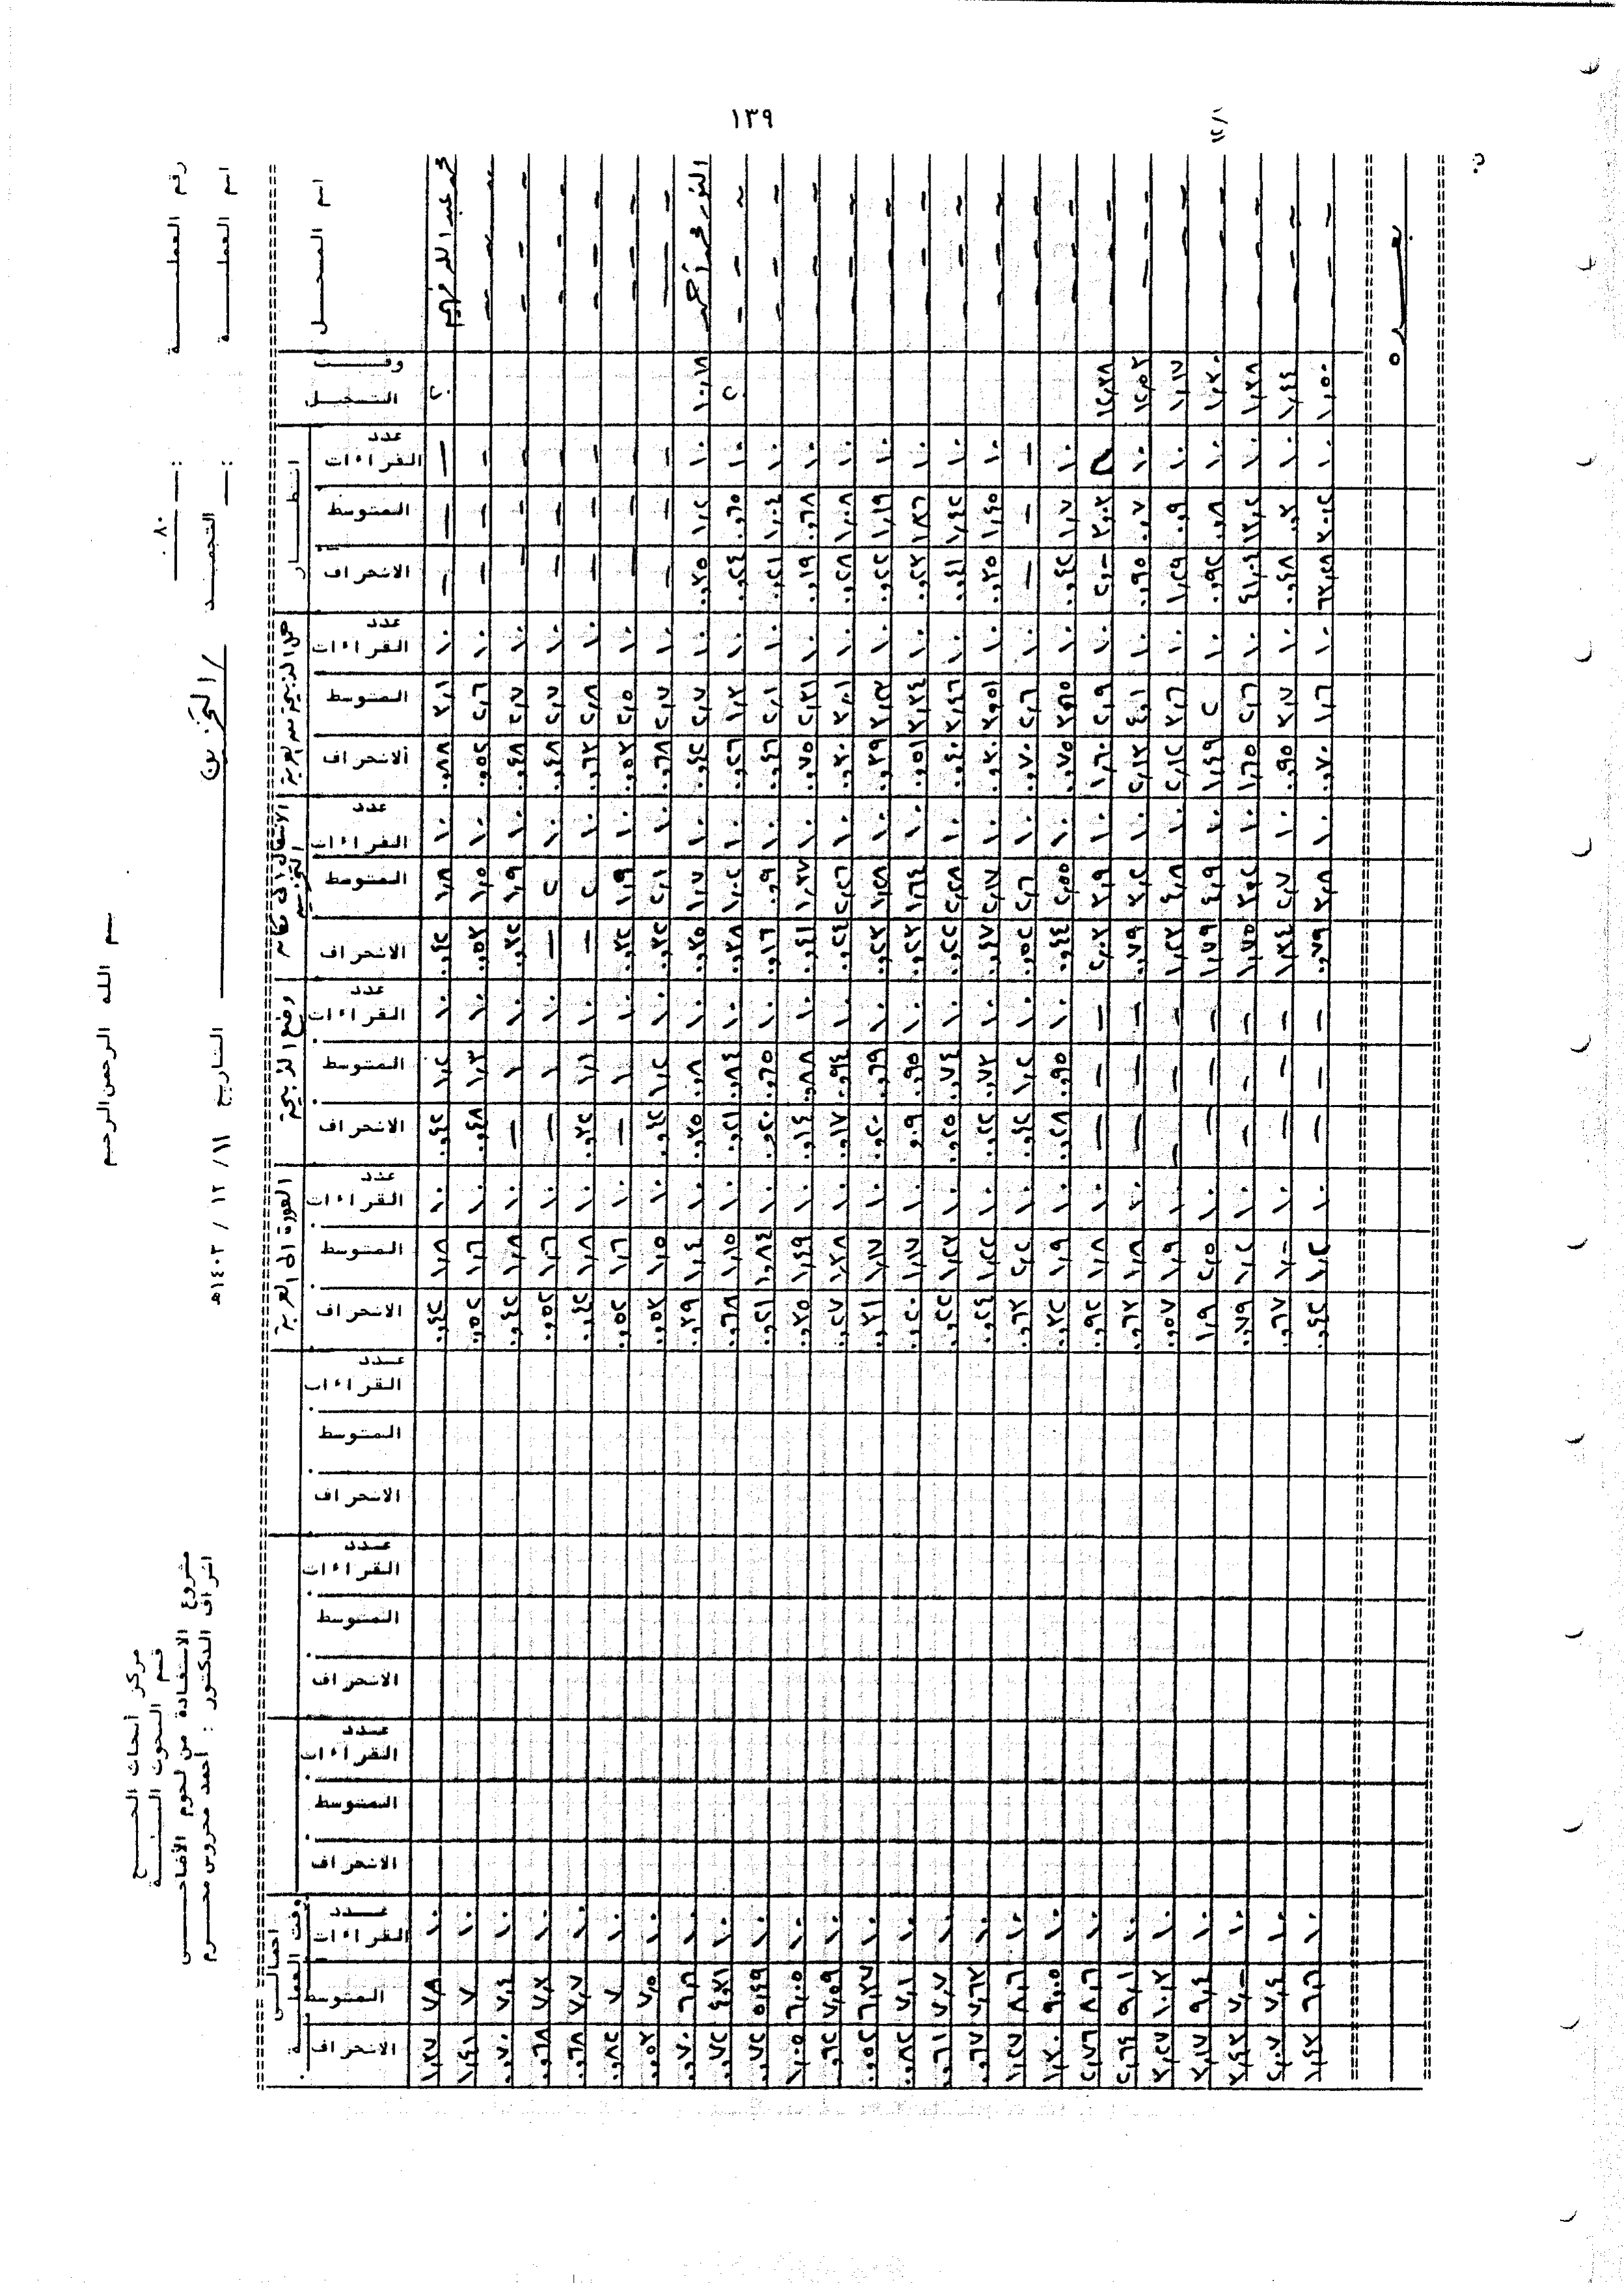 ١٣٩
بسم الله الرحمن الرحيم
مركز أبحاث الحج
قسم البحوث البيئية
مشروع الاستفادة من لحوم الأضاحي
اشراف الدكتور : أحمد محروس محرم
رقم العملية : ٨٠
اسم العملية : التجميد / التخزين التاريخ ١١ / ١٢ / ١٤٠٣هـ
اسم المسجل وقت التسجيل انتظار حمل الذبيحة من العربة الانتقال الى مكان التخزين وضع الذبيحة العودة الى العربة اجمالي وقت العملية
عدد القراءات المتوسط الانحراف عدد القراءات المتوسط الانحراف عدد القراءات المتوسط الانحراف عدد القراءات المتوسط الانحراف عدد القراءات المتوسط الانحراف عدد القراءات المتوسط الانحراف عدد القراءات المتوسط الانحراف عدد القراءات المتوسط الانحراف عدد القراءات المتوسط الانحراف
محمد عبد الله فهيم ؟ — — — ١٠ ٣,١ ٠,٨٨ ١٠ ١,٨ ٠,٤٢ ١٠ ١,٢ ٠,٤٢ ١٠ ١,٨ ٠,٤٢ ١٠ ٧,٨ ١,٣٧
— — — — — — ١٠ ٢,٦ ٠,٥٢ ١٠ ١,٥ ٠,٥٣ ١٠ ١,٣ ٠,٤٨ ١٠ ١,٦ ٠,٥٢ ١٠ ٧ ١,٤١
— — — — — — ١٠ ٢,٧ ٠,٤٨ ١٠ ١,٩ ٠,٣٢ ١٠ ١ — ١٠ ١,٨ ٠,٤٢ ١٠ ٧,٤ ٠,٧٠
— — — — — — ١٠ ٢,٧ ٠,٤٨ ١٠ ٢ — ١٠ ١ — ١٠ ١,٦ ٠,٥٢ ١٠ ٧,٣ ٠,٦٨
— — — — — — ١٠ ٢,٨ ٠,٦٣ ١٠ ٢ — ١٠ ١,١ ٠,٣٢ ١٠ ١,٨ ٠,٤٢ ١٠ ٧,٧ ٠,٦٨
— — — — — — ١٠ ٢,٥ ٠,٥٣ ١٠ ١,٩ ٠,٣٢ ١٠ ١ — ١٠ ١,٦ ٠,٥٢ ١٠ ٧ ٠,٨٢
— — — — — — ١٠ ٢,٧ ٠,٦٨ ١٠ ٢,١ ٠,٣٢ ١٠ ١,٢ ٠,٤٢ ١٠ ١,٥ ٠,٥٣ ١٠ ٧,٥ ٠,٥٣
النور محمد أحمد ١٠,١٨ ١٠ ١,٢ ٠,٣٥ ١٠ ٢,٧ ٠,٤٢ ١٠ ١,٧ ٠,٣٥ ١٠ ٠,٨ ٠,٣٥ ١٠ ١,٤ ٠,٣٩ ١٠ ٦,٦ ٠,٧٠
— — — ؟ ١٠ ٠,٦٥ ٠,٢٤ ١٠ ١,٣ ٠,٢٦ ١٠ ١,٠٢ ٠,٣٨ ١٠ ٠,٨٤ ٠,٢١ ١٠ ١,١٥ ٠,٦٨ ١٠ ٤,٣١ ٠,٧٢
— — — ١٠ ١,٠٤ ٠,٢١ ١٠ ٢,١ ٠,٤٦ ١٠ ٠,٩ ٠,١٦ ١٠ ٠,٦٥ ٠,٢٠ ١٠ ١,٨٤ ٠,٢١ ١٠ ٥,٤٩ ٠,٧٢
— — — ١٠ ٠,٦٨ ٠,١٩ ١٠ ٢,٣١ ٠,٧٥ ١٠ ١,٣٧ ٠,٤١ ١٠ ٠,٨٨ ٠,١٤ ١٠ ١,٤٩ ٠,٣٥ ١٠ ٦,٠٥ ١,٠٥
— — — ١٠ ١,٠٨ ٠,٢٨ ١٠ ٣,٠١ ٠,٣٠ ١٠ ٢,٢٦ ٠,٢٤ ١٠ ٠,٩٤ ٠,١٧ ١٠ ١,٣٨ ٠,٢٧ ١٠ ٧,٥٩ ٠,٦٢
— — — ١٠ ١,١٩ ٠,٢٢ ١٠ ٣,٢٢ ٠,٣٩ ١٠ ١,٢٨ ٠,٢٣ ١٠ ٠,٦٩ ٠,٢٠ ١٠ ١,١٧ ٠,٣١ ١٠ ٦,٣٧ ٠,٥٢
— — — ١٠ ١,٨٦ ٠,٢٣ ١٠ ٣,٣٤ ٠,٥١ ١٠ ١,٦٤ ٠,٢٢ ١٠ ٠,٩٥ ٠,٠٩ ١٠ ١,١٧ ٠,٢٠ ١٠ ٧,١ ٠,٨٢
— — — ١٠ ١,٤٢ ٠,٤١ ١٠ ٣,٤٦ ٠,٤٠ ١٠ ٢,٢٨ ٠,٢٢ ١٠ ٠,٧٤ ٠,٢٥ ١٠ ١,٢٧ ٠,٢٢ ١٠ ٧,٧ ٠,٦١
— — — ١٠ ١,٤٥ ٠,٣٥ ١٠ ٣,٥١ ٠,٣٠ ١٠ ٢,١٧ ٠,٤٧ ١٠ ٠,٧٣ ٠,٢٢ ١٠ ١,٢٢ ٠,٢٤ ١٠ ٧,٦٣ ٠,٦٧
— — — — — — ١٠ ٢,٦ ٠,٧٠ ١٠ ٢,٦ ٠,٥٢ ١٠ ١,٢ ٠,٤٢ ١٠ ٢,٢ ٠,٦٣ ١٠ ٨,٦ ١,٢٧
— — — ١٠ ١,٧ ٠,٤٢ ١٠ ٣,٦٥ ٠,٧٥ ١٠ ٢,٥٥ ٠,٤٤ ١٠ ٠,٩٥ ٠,٢٨ ١٠ ١,٩ ٠,٣٢ ١٠ ٩,٠٥ ١,٣٠
— — — ١٢,٣٨ ٣,٠٣ ١٠ ٢,٩ ١,٦٠ ١٠ ٣,٩ ٢,٠٣ — — — ١٠ ١,٨ ٠,٩٢ ١٠ ٨,٦ ٢,٧٦
— — — ١٢,٥٣ ١٠ ٠,٧ ٠,٩٥ ١٠ ٤,١ ٢,١٣ ١٠ ٣,٢ ٠,٧٩ — — — ١٠ ١,٨ ٠,٦٣ ١٠ ٩,١ ٢,٦٤
— — — ١,١٧ ١٠ ٠,٩ ١,٢٩ ١٠ ٣,٦ ٢,١٢ ١٠ ٤,٨ ١,٢٣ — — — ١٠ ١,٩ ٠,٥٧ ١٠ ١٠,٣ ٣,٢٧
١٢/١ — — — ١,٣٠ ١٠ ٠,٨ ٠,٩٢ ١٠ ٢ ١,٤٩ ١٠ ٤,٩ ١,٧٩ — — — ١٠ ٢,٥ ١,٩ ١٠ ٩,٤ ٣,١٧
— — — ١,٣٨ ١٠ ١٣,٢ ٤١,٠٤ ١٠ ٢,٦ ١,٦٥ ١٠ ٣,٢ ١,٧٥ — — — ١٠ ١,٢ ٠,٧٩ ١٠ ٧,٠ ٣,٤٣
— — — ١,٤٤ ١٠ ٠,٣ ٠,٤٨ ١٠ ٣,٧ ٠,٩٥ ١٠ ٢,٧ ١,٣٤ — — — ١٠ ١,٠ ٠,٦٧ ١٠ ٧,٤ ٢,٠٧
— — — ١,٥٠ ١٠ ٣٠,٢ ٦٣,٢٨ ١٠ ١,٦ ٠,٧٠ ١٠ ٣,٨ ٠,٧٩ — — — ١٠ ١,٢ ٠,٤٢ ١٠ ٦,٦ ١,٤٣